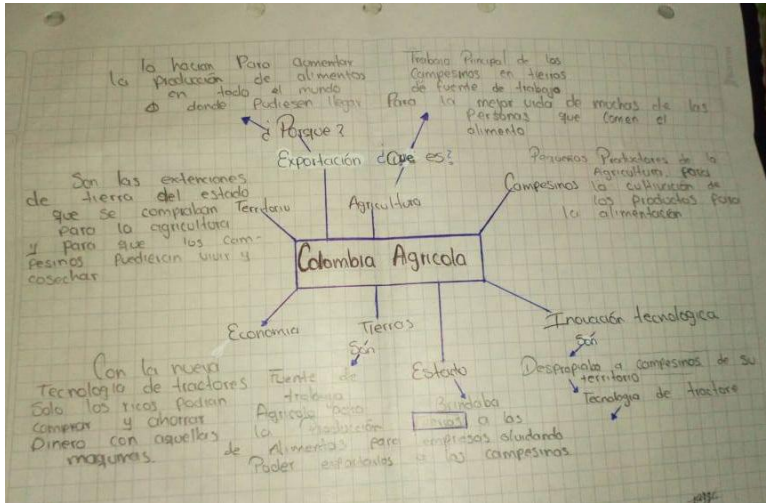 lo hacian Para aumentar
la producción de alimentos
en todo el mundo
o donde Pudiesen llegar
¿Porque?
Exportación
Trabajo Principal de los
Campesinos en tierras
de fuente de trabajo
Para la mejor vida de muchas de las
Personas que comen el
alimento
¿Que es?
Agricultura
Pequeños Productores de la
Agricultura para
la cultivación de
los productos para
la alimentación
Campesinos
Son las extenciones
de tierra del estado
que se compraban
para la agricultura
y para que los cam-
pesinos Pudieran vivir y
cosechar
Territorio
Colombia Agricola
Economia
Con la nueva
Tecnologia de tractores
Solo los ricos podian
comprar y ahorrar
Dinero con aquellas
maquinas.
Tierras
Són
Fuente de
trabajo
Agricola para
la Producción
de Alimentos para
Poder exportarlos
Estado
Brindaba
a las
empresas olvidando
a los campesinos
Inovación tecnologica
Són
Despropiaba a campesinos de su
territorio
Tecnologia de tractore